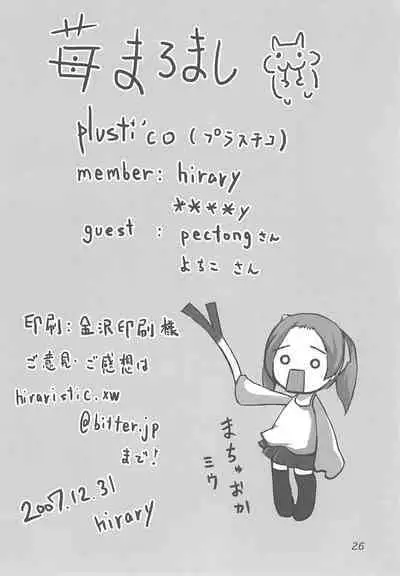 苺まろまし
plusti'co (プラスチコ)
member: hirary
****y
guest : pectongさん
よちこ さん
印刷: 金沢印刷様
ご意見・ご感想は
hiraristic.xw
@bitter.jp
まで!
2007.12.31
hirary
まちゅおか
ミウ
26